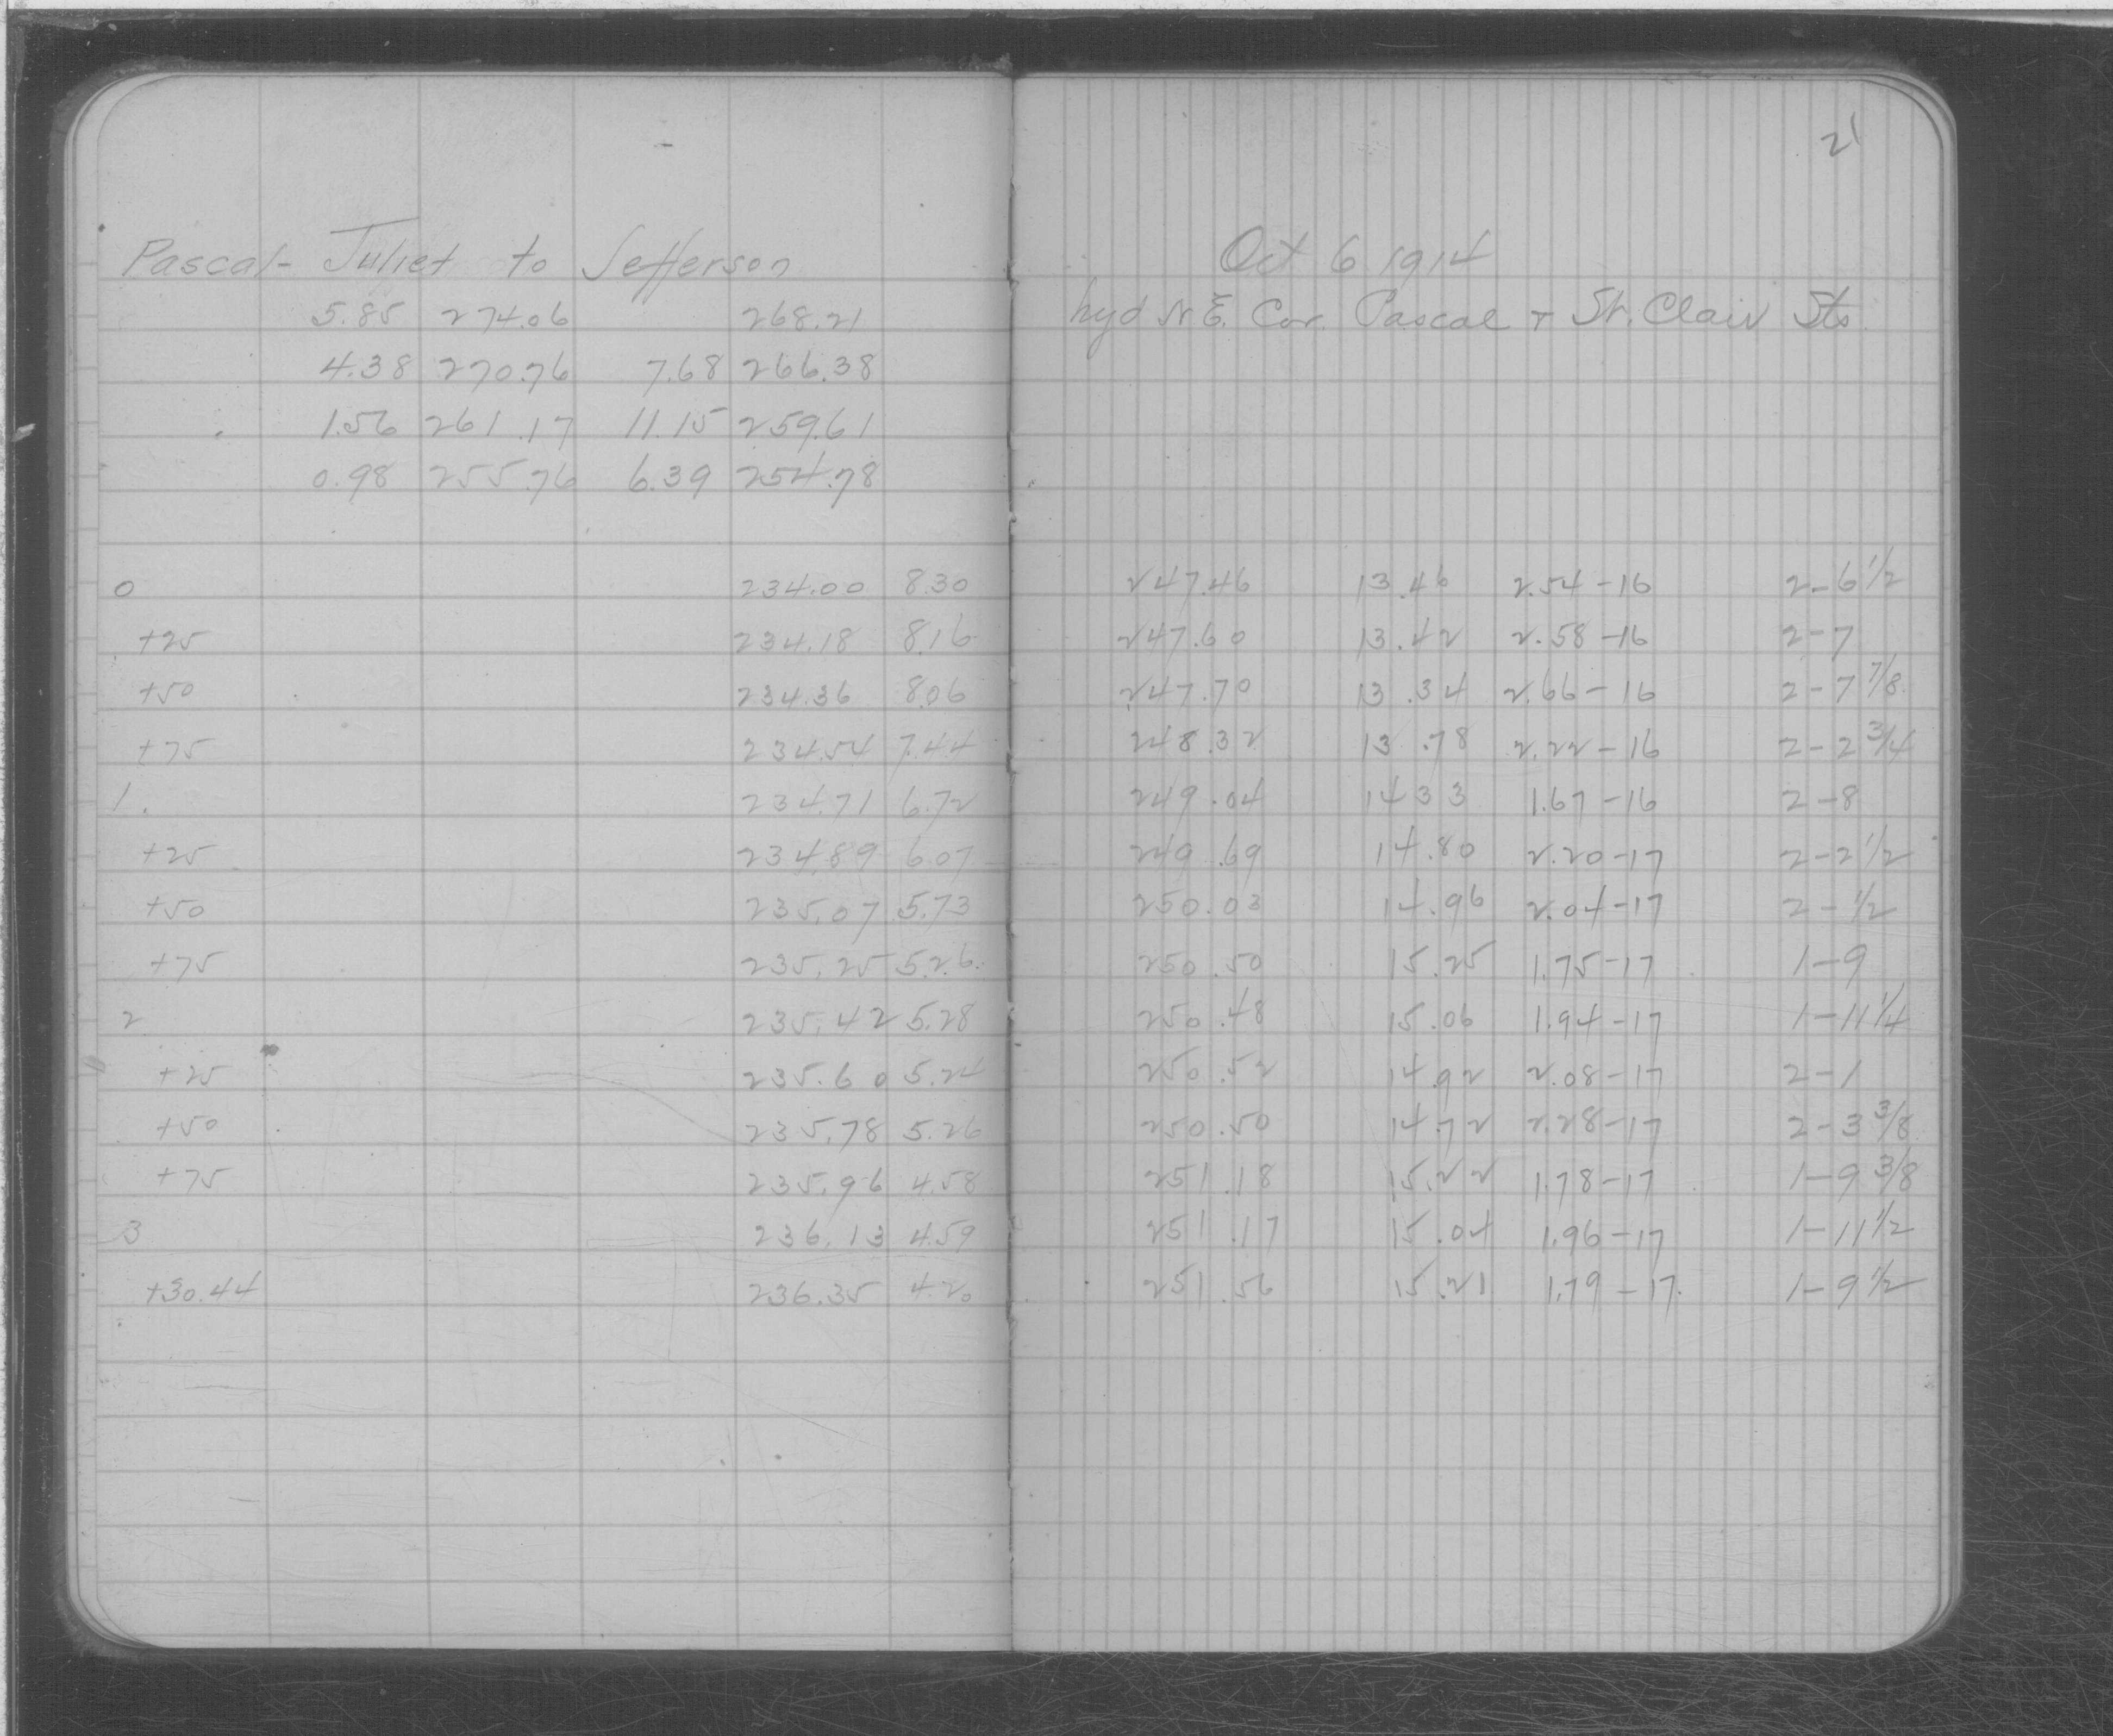 21
Pascal - Juliet to Jefferson Oct 6 1914
5.85 274.06 268.21 hyd N.E. Cor. Pascal + St. Clair Sts
4.38 270.76 7.68 266.38
1.56 261.17 11.15 259.61
0.98 255.76 6.39 254.78
0 234.00 8.30 247.46 13.46 2.54-16 2-6 1/2
+25 234.18 8.16 247.60 13.42 2.58-16 2-7
+50 234.36 8.06 247.70 13.34 2.66-16 2-7 7/8
+75 234.54 7.44 248.32 13.78 2.22-16 2-2 3/4
1. 234.71 6.72 249.04 14.33 1.67-16 2-8
+25 234.89 6.07 249.69 14.80 2.20-17 2-2 1/2
+50 235.07 5.73 250.03 14.96 2.04-17 2-1/2
+75 235.25 5.26 250.50 15.25 1.75-17 1-9
2 235.42 5.28 250.48 15.06 1.94-17 1-11 1/4
+25 235.60 5.24 250.52 14.92 2.08-17 2-1
+50 235.78 5.26 250.50 14.72 2.28-17 2-3 3/8
+75 235.96 4.58 251.18 15.22 1.78-17 1-9 3/8
3 236.13 4.59 251.17 15.04 1.96-17 1-11 1/2
+30.44 236.35 4.20 251.56 15.21 1.79-17. 1-9 1/2